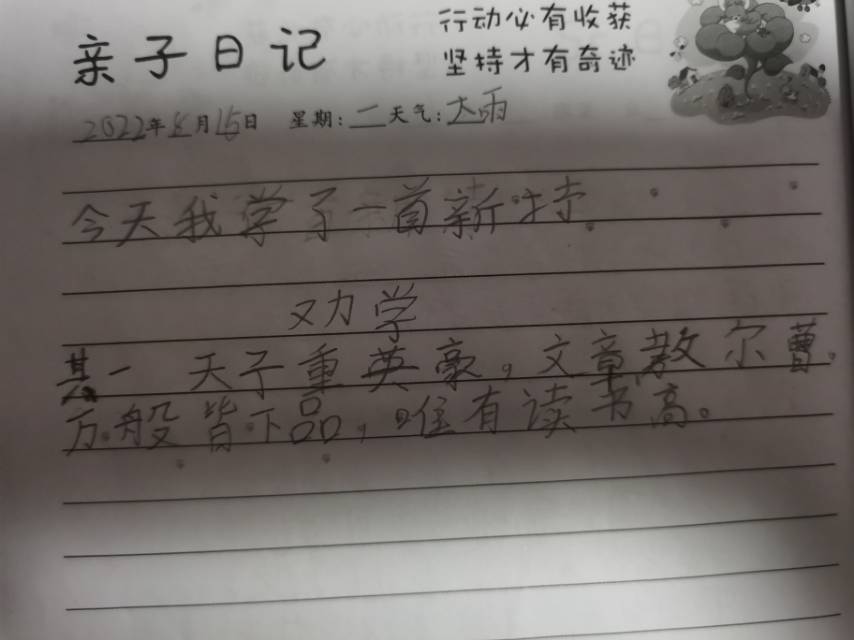 亲子日记
行动必有收获
坚持才有奇迹
2022年8月15日 星期:二 天气:大雨
今天我学了一首新特。
劝学
其一 天子重英豪,文章教尔曹。
万般皆下品,唯有读书高。